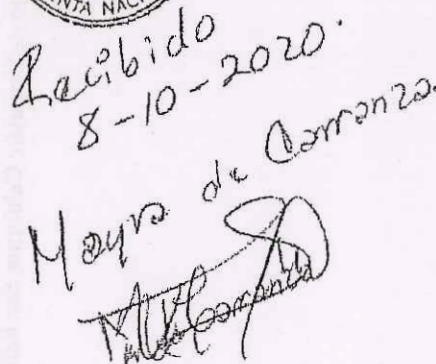 NTA NAC
Recibido
8-10-2020.
Mayra de Carranza.